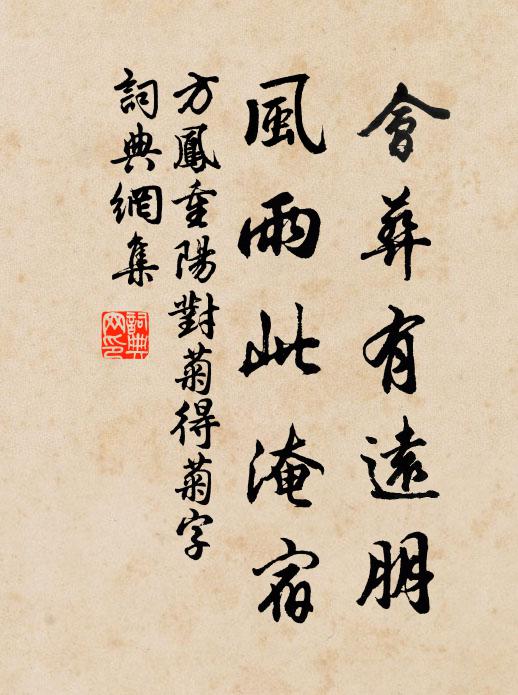 會葬有遠朋
風雨此淹宿
方鳳重陽對菊得菊字
詞典網集
詞典网印